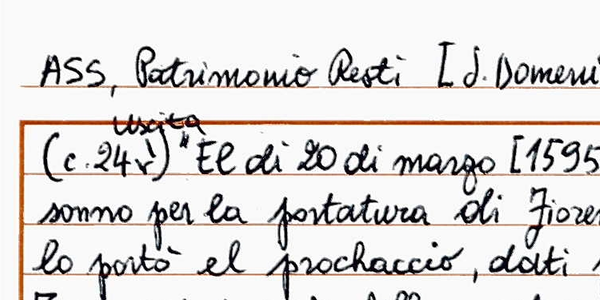 ASS, Patrimonio Resti [S. Domeni
uscita
(c. 24v) "El di 20 di marzo [1595
sonno per la portatura di Fioren
lo portò el prochaccio, dati